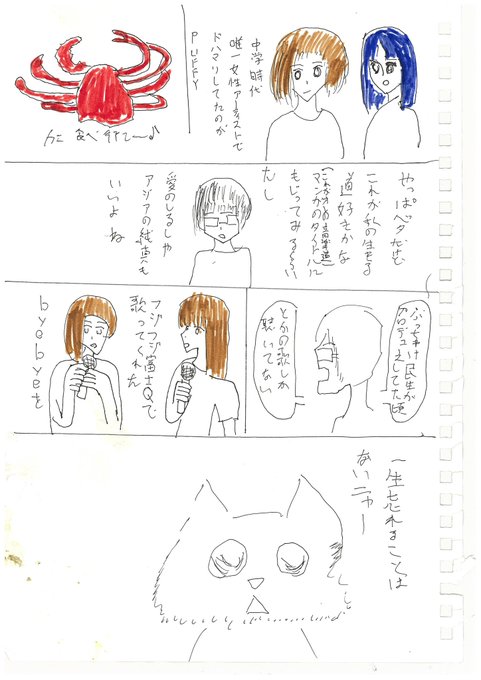 中学時代
唯一女性アーティストで
ドハマリしてたのが
PUFFY
カニ 食べ行こー♪
やっぱベタだけど
これが私の生きる
道好きかな
マンガのタイトルに
もじってみるくらい
だし
愛のしるしや
アジアの純真も
いいよね
ぶっちゃけ民生が
プロデュースしてた頃
とかの歌しか
聴いてない
フジフジ富士Qで
歌ってくれた
byebyeを
一生忘れることは
ないニャー